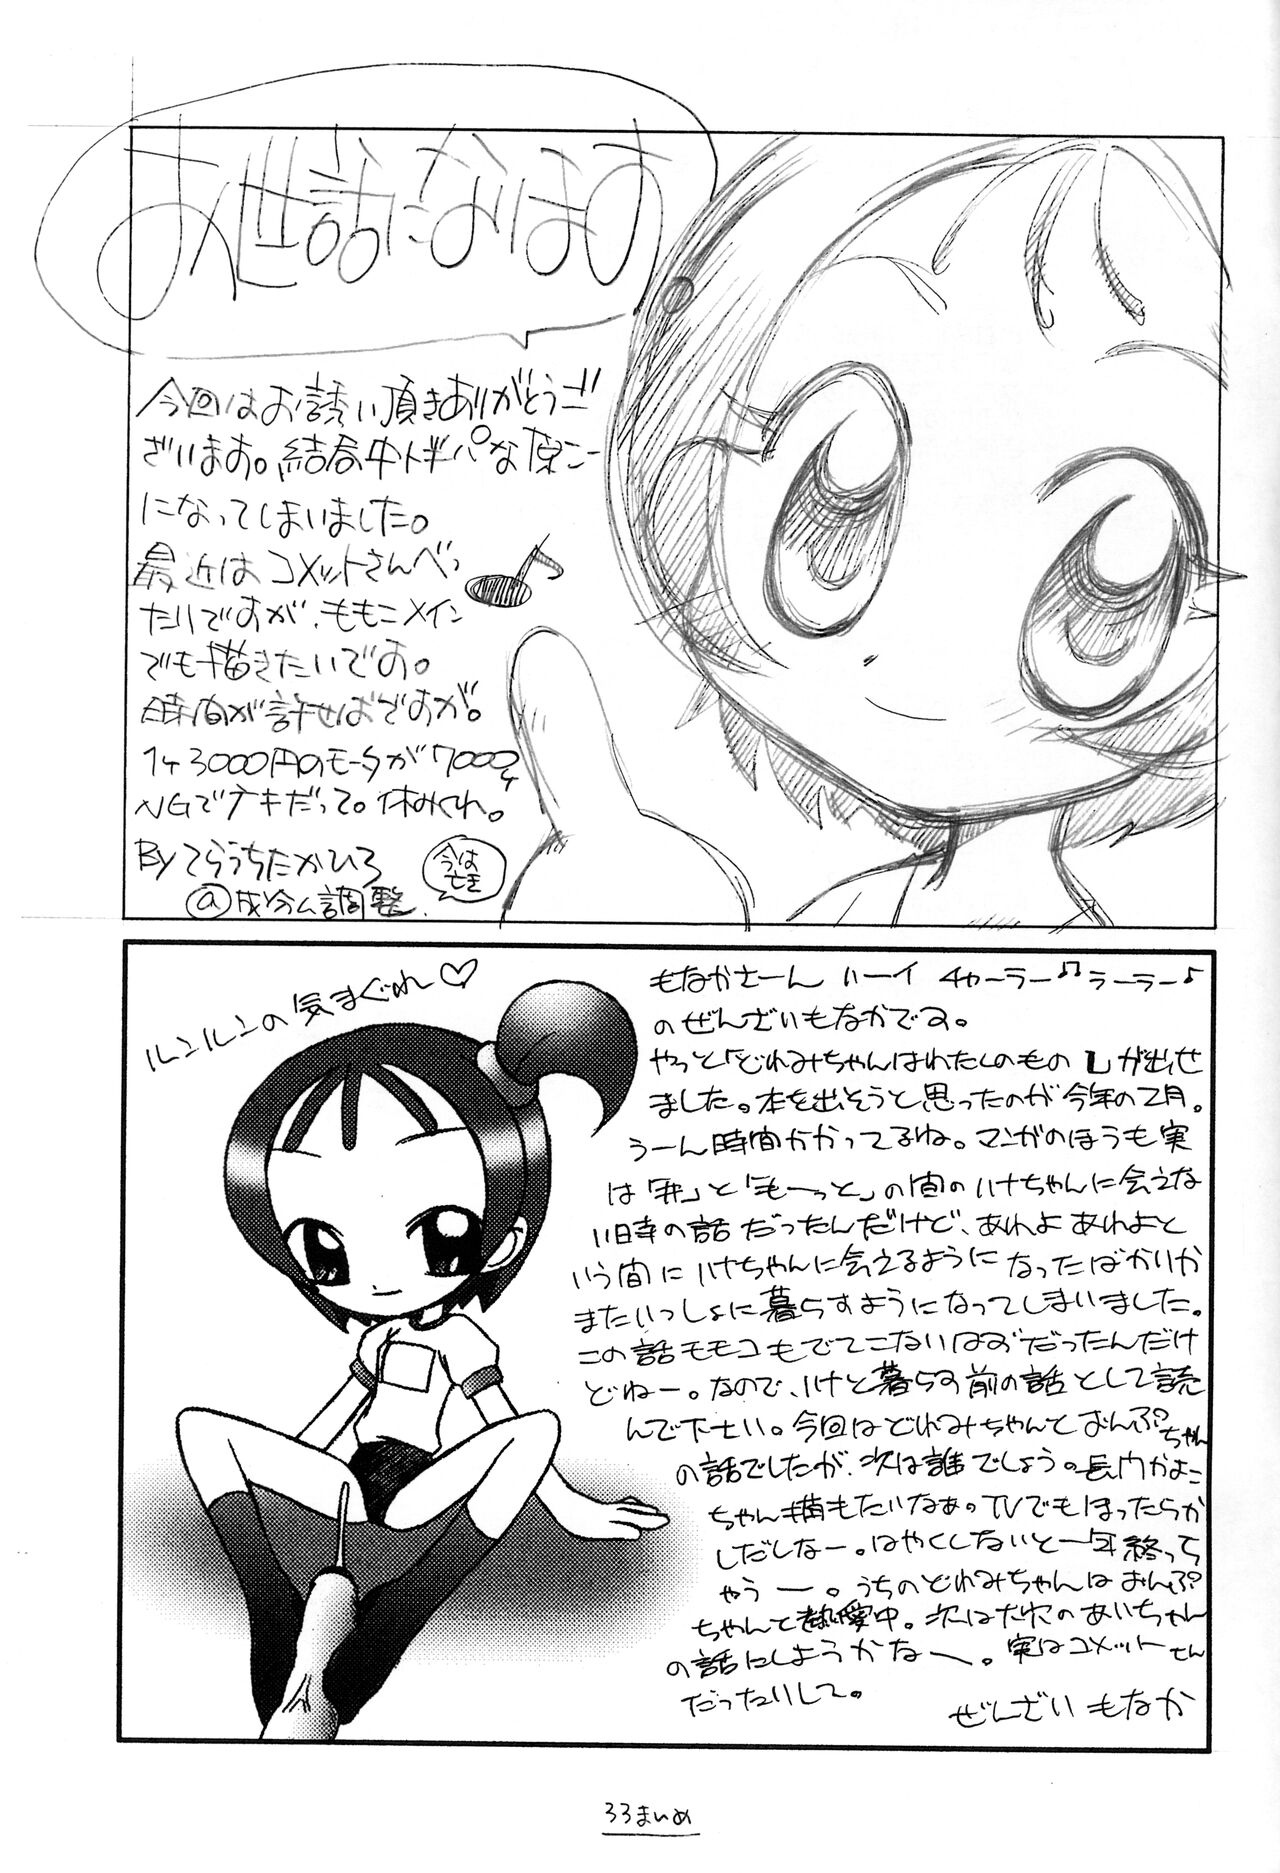 お世話になります
今回はお誘い頂きありがとうご
ざいます。結局中トハンパな原こー
になってしまいました。
最近はコメットさんべっ
たりですが、ももこメイン
でも描きたいです。
時間が許せばですが。
1ヶ3000円のモータが7000ヶ
NGでナキだって。休みくれ。
By てらうちたかひろ
@成分無調整
今は亡き
ルンルンの気まぐれ♡
もなかさーん ハーイ チャーラー♫ラーラー♪
のぜんざいもなかです。
やっと「どれみちゃんはわたしのもの」が出せ
ました。本を出そうと思ったのが今年の2月。
うーん時間かかってるね。マンガのほうも実
は「#」と「も〜っと」の間のハナちゃんに会えな
い時の話だったんだけど、あれよあれよと
いう間にハナちゃんに会えるようになったばかりか
またいっしょに暮らすようになってしまいました。
この話モモコもでてこないはずだったんだけ
どねー。なので、ハナと暮らす前の話として読
んで下さい。今回はどれみちゃんとおんぷちゃん
の話でしたが、次は誰でしょう。長門かよこ
ちゃん描きたいなぁ。TVでもほったらか
しだしなー。はやくしないと一年終っち
ゃうー。うちのどれみちゃんはおんぷ
ちゃんと熱愛中。次はだれのあいちゃん
の話にしようかなー。実はコメットさん
だったりして。
ぜんざいもなか
33まいめ